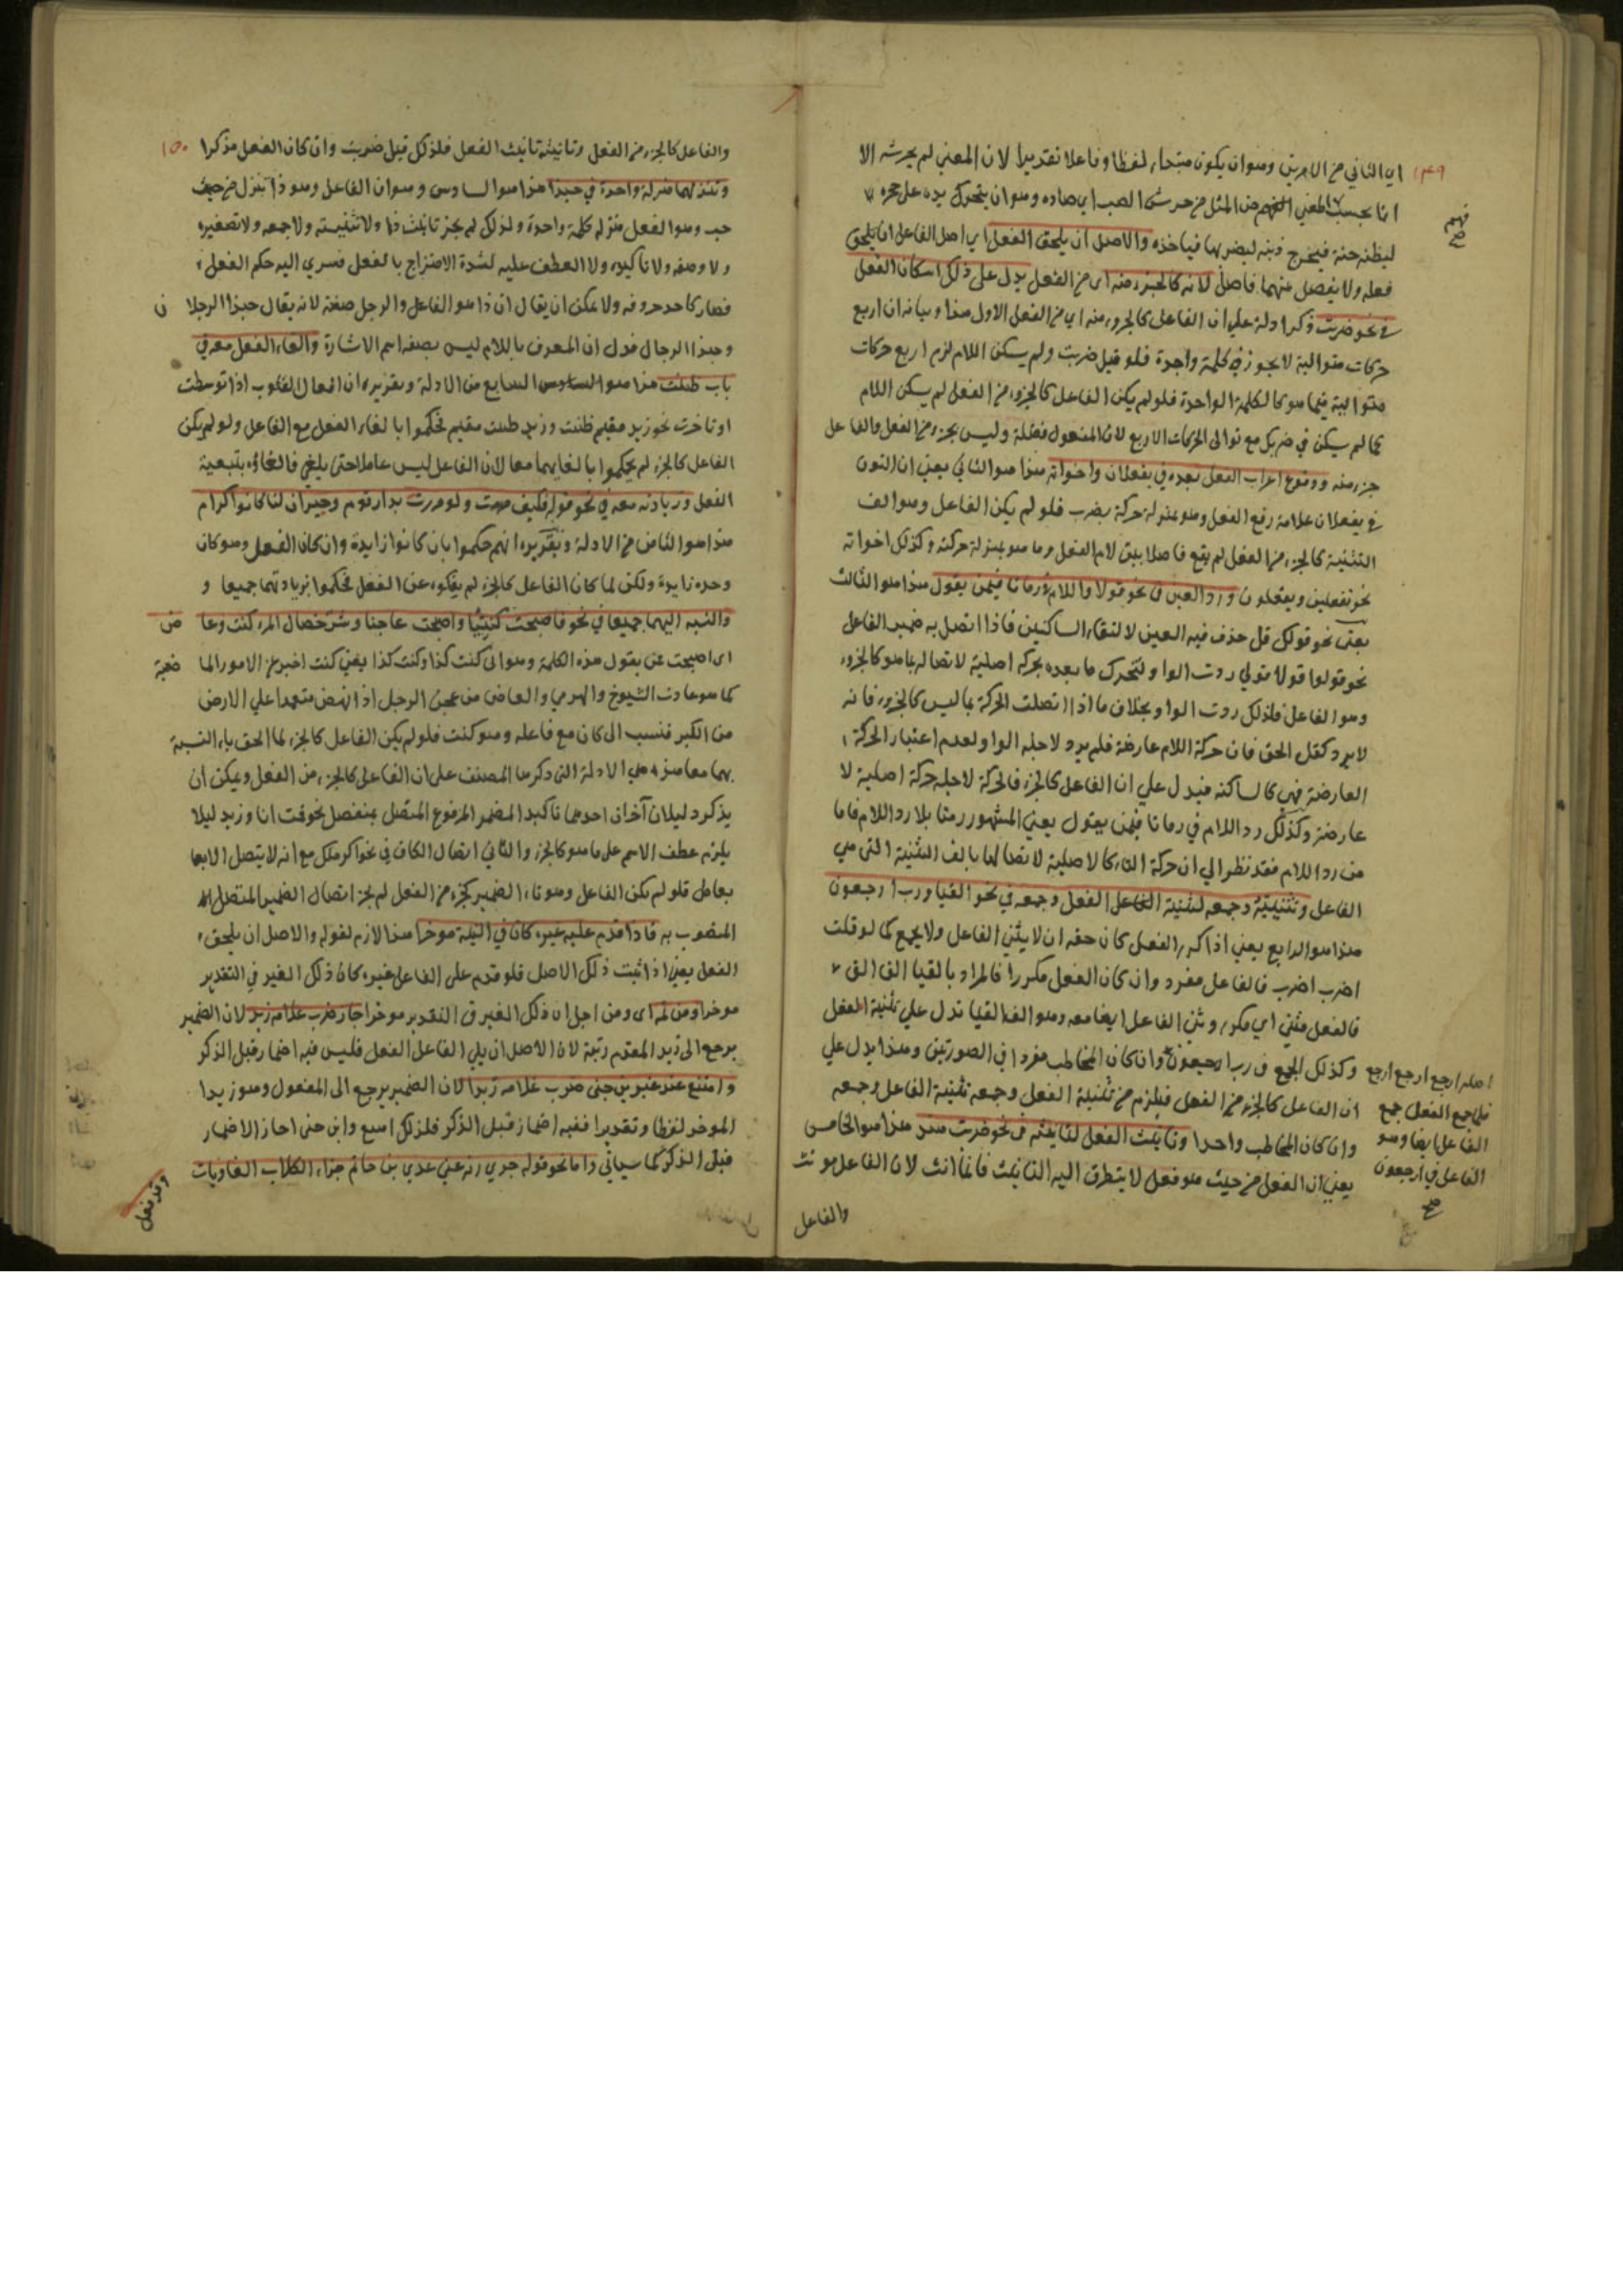 اي الثاني من الامرين وهو ان يكون مبتداء لفظا وفاعلا تقديرا لان المعني لم يحرشه الا
انا بحسب المعني من المثل من حرش الضب اي صاده وهو ان يتحرك يده علي جحره
ليظنه حية فيخرج ذنبه ليضربها فياخذه والاصل ان يلحق الفعل اي اصل الفاعل ان يلحق
فعله ولا يفصل منهما فاصل لانه كالجزء منه اي من الفعل يدل علي ذلك اسكان الفعل
في نحو ضربت ذكر ادلة علي ان الفاعل كالجزء منه اي من الفعل الاول هذا وبيانه ان اربع
حركات متوالية لا يجوز في كلمة واحدة فلو قيل ضربت ولم يسكن اللام لزم اربع حركات
متوالية فيما هو كالكلمة الواحدة فلو لم يكن الفاعل كالجزء من الفعل لم يسكن اللام
كما لم يسكن في ضربك مع توالي الحركات الاربع لان المفعول فضلة وليس بجزء من الفعل والفاعل
جزء منه ووقوع اعراب الفعل بعده في يفعلان واخواته هذا هو الثاني يعني ان النون
في يفعلان علامة رفع الفعل وهو بمنزلة حركة يضرب فلو لم يكن الفاعل وهو الف
التثنية كالجزء من الفعل لم يقع فاصلا بين لام الفعل وما هو بمنزلة حركته وكذلك اخواته
نحو تفعلين ويفعلون ورد العين في نحو قولا واللام في رماتا فيمن يقول هذا هو الثالث
يعني نحو قولك قل حذف فيه العين لالتقاء الساكنين فاذا اتصل به ضمير الفاعل
نحو قولوا قولا قولي ردت الواو لتحرك ما بعده بحركة اصلية لاتصاله بما هو كالجزء
وهو الفاعل فلذلك ردت الواو بخلاف ما اذا اتصلت الحركة بما ليس كالجزء فانه
لا يرد كقل الحق فان حركة اللام عارضة فلم يرد لاجله الواو لعدم اعتبار الحركة
العارضة فهي كالساكنة فيدل علي ان الفاعل كالجزء فالحركة لاجله حركة اصلية لا
عارضة وكذلك رد اللام في رماتا فيمن يقول يعني المشهور رمتا بلا رد اللام فاما
من رد اللام فقد نظر الي ان حركة التاء كالاصلية لاتصالها بالف التثنية التي هي
الفاعل وتثنيته وجمعه لتثنية الفعل وجمعه في نحو القيا ورب ارجعون
هذا هو الرابع يعني اذا كرر الفعل كان حقه ان لا يثني الفاعل ولا يجمع كما لو قلت
اضرب اضرب فالفاعل مفرد وان كان الفعل مكررا فالمراد بالقيا الق الق
فالفعل مثني اي مكرر وثني الفاعل ايضا معه وهو الف القيا تدل علي تثنية الفعل
وكذلك الجمع في رب ارجعون وان كان المخاطب مفردا في الصورتين وهذا يدل علي
ان الفاعل كالجزء من الفعل فيلزم من تثنية الفعل وجمعه تثنية الفاعل وجمعه
وان كان المخاطب واحدا وتانيث الفعل لتانيثه في نحو ضربت هند هذا هو الخامس
يعني ان الفعل من حيث هو فعل لا يتطرق اليه التانيث فانما انث لان الفاعل مونث
والفاعل
١٤٩
اصله ارجع ارجع ارجع
فلما جمع الفعل جمع
الفاعل ايضا وهو
الفاعل في ارجعون
صح
١٥٠
والفاعل كالجزء من الفعل وتانيثه تانيث الفعل فلذلك قيل ضربت وان كان الفعل مذكرا
وتنزلهما منزلة واحدة في حبذا هذا هو السادس وهو ان الفاعل وهو ذا تنزل من حيث
حب وهو الفعل منزلة كلمة واحدة ولذلك لم يجز تانيث ذا ولا تثنيته ولا جمعه ولا تصغيره
ولا وصفه ولا تاكيده ولا العطف عليه لشدة الامتزاج بالفعل فسري اليه حكم الفعل
فصار كاحد حروفه ولا يمكن ان يقال ان ذا هو الفاعل والرجل صفته لانه يقال حبذا الرجلان
وحبذا الرجال فدل ان المعرف باللام ليس بصفة اسم الاشارة والغاء الفعل معه في
باب ظننت هذا هو السابع من الادلة وتقريره ان افعال القلوب اذا توسطت
او تاخرت نحو زيد مقيم ظننت وزيد ظننت مقيم فحكموا بالغاء الفعل مع الفاعل ولو لم يكن
الفاعل كالجزء لم يحكموا بالغايهما معا لان الفاعل ليس عاملا حتي يلغي فالغاؤه بتبعية
الفعل وزيادته معه في نحو قوله فكيف ولو مررت بدار قوم وجيران لنا كانوا كرام
هذا هو الثامن من الادلة وتقريره انهم حكموا بان كانوا زايدة وان كان الفعل وهو كان
وحده زايدة ولكن لما كان الفاعل كالجزء لم يفكوه عن الفعل فحكموا بزيادتهما جميعا و
والنسبة اليهما جميعا في نحو فاصبحت كنتيا واصبحت عاجنا وشر خصال المرء كنت وعاجن
اي اصبحت من يقول هذه الكلمة وهو اني كنت كذا وكنت كذا يعني كنت اخبر عن الامور الماضية
كما هو عادت الشيوخ والهرمي والعاجن من عجن الرجل اذا نهض متعمدا علي الارض
من الكبر فنسب الي كان مع فاعله وهو كنت فلو لم يكن الفاعل كالجزء لما الحق ياء النسبة
بهما معا هذه هي الادلة التي ذكرها المصنف علي ان الفاعل كالجزء من الفعل ويمكن ان
يذكر دليلان آخران احدهما تاكيد المضمر المرفوع المتصل بمنفصل نحو قمت انا وزيد ليلا
يلزم عطف الاسم علي ما هو كالجزء والثاني اتصال الكاف في نحو اكرمتك مع انه لا يتصل الا بها
بعامل فلو لم يكن الفاعل وهو تاء الضمير كجزء من الفعل لم يجز اتصال الضمير المتصل
المنصوب به فاذا قدم عليه غيره كان في النية موخرا هذا لازم لقوله والاصل ان يلحق
الفعل يعني اذا ثبت ذلك الاصل فلو قدم علي الفاعل غيره كان ذلك الغير في التقدير
موخرا ومن ثمه اي ومن اجل ان ذلك الغير في التقدير موخرا جاز ضرب غلامه زيد لان الضمير
يرجع الي زيد المقدم رتبة لان الاصل ان يلي الفاعل الفعل فليس فيه اضمار قبل الذكر
وامتنع عند غير بن جني ضرب غلامه زيدا لان الضمير يرجع الي المفعول وهو زيدا
الموخر لفظا وتقديرا ففيه اضمار قبل الذكر فلذلك امتنع وابن جني اجاز الاضمار
قبل الذكر كما سياتي واما نحو قوله جزي ربه عني عدي بن حاتم جزاء الكلاب العاويات
وقد فعل